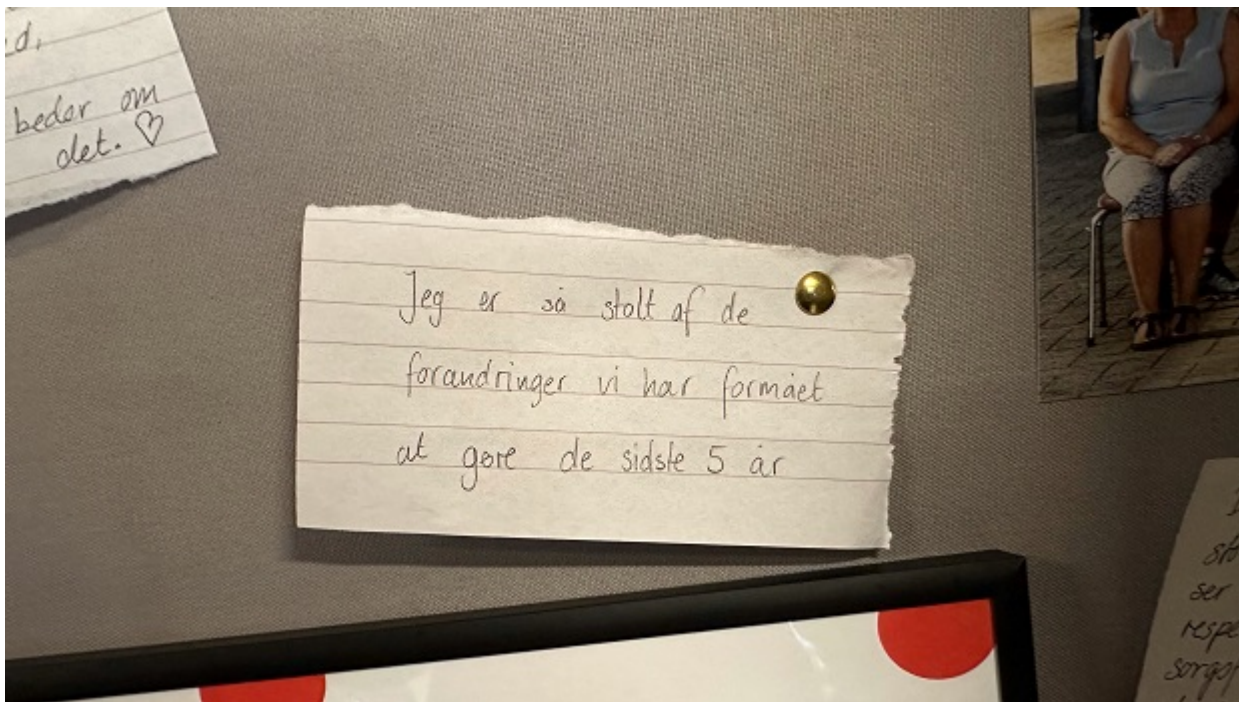 d,
beder om
det. ♡
Jeg er så stolt af de
forandringer vi har formået
at gøre de sidste 5 år
ser